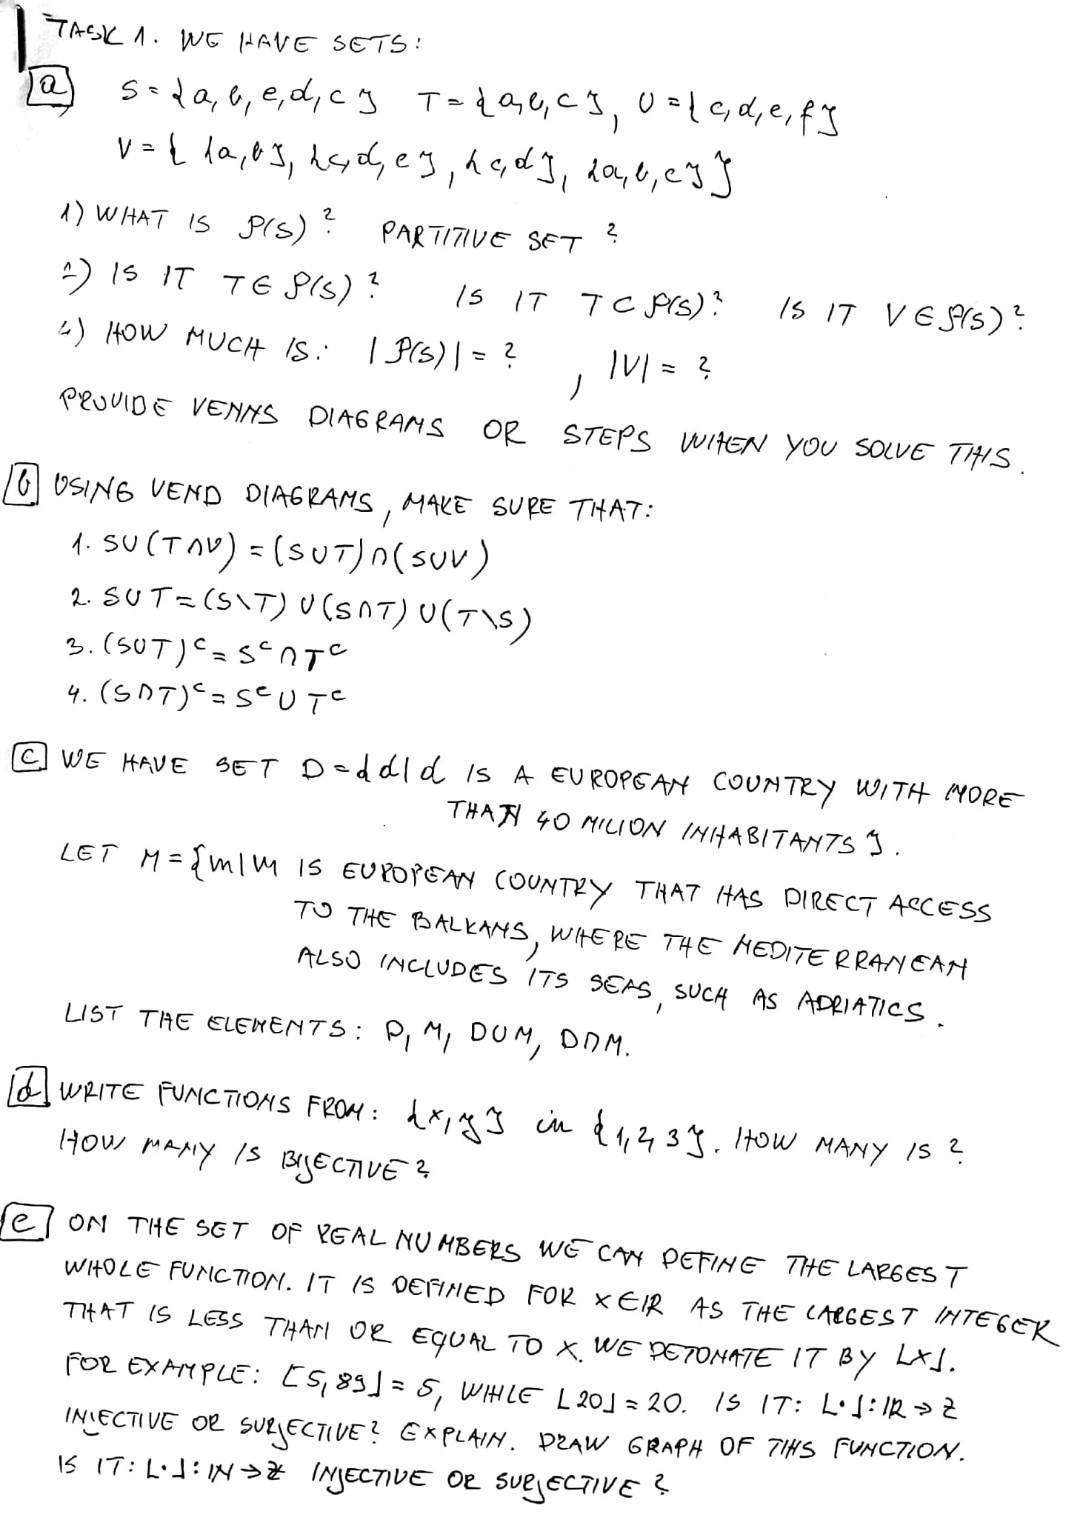 TASK 1. WE HAVE SETS:
a S = {a, b, e, d, c} T = {a, b, c}, U = {c, d, e, f}
V = { {a, b}, {c, d, e}, {c, d}, {a, b, c} }
1) WHAT IS P(S)? PARTITIVE SET?
2) IS IT T ∈ P(S)? IS IT T ⊂ P(S)? IS IT V ∈ P(S)?
4) HOW MUCH IS: |P(S)| = ?, |V| = ?
PROVIDE VENNS DIAGRAMS OR STEPS WHEN YOU SOLVE THIS.
b USING VEND DIAGRAMS, MAKE SURE THAT:
1. S∪(T∩U) = (S∪T)∩(S∪U)
2. S∪T = (S\T)∪(S∩T)∪(T\S)
3. (S∪T)ᶜ = Sᶜ∩Tᶜ
4. (S∩T)ᶜ = Sᶜ∪Tᶜ
c WE HAVE SET D = {d|d IS A EUROPEAN COUNTRY WITH MORE
THAN 40 MILION INHABITANTS}.
LET M = {m|m IS EUROPEAN COUNTRY THAT HAS DIRECT ACCESS
TO THE BALKANS, WHERE THE MEDITERRANEAN
ALSO INCLUDES ITS SEAS, SUCH AS ADRIATICS.
LIST THE ELEMENTS: D, M, D∪M, D∩M.
d WRITE FUNCTIONS FROM: {x, y} in {1, 2, 3}. HOW MANY IS?
HOW MANY IS BIJECTIVE?
e ON THE SET OF REAL NUMBERS WE CAN DEFINE THE LARGEST
WHOLE FUNCTION. IT IS DEFINED FOR x∈IR AS THE LARGEST INTEGER
THAT IS LESS THAN OR EQUAL TO X. WE DETONATE IT BY ⌊X⌋.
FOR EXAMPLE: ⌊5,89⌋ = 5, WHILE ⌊20⌋ = 20. IS IT: ⌊•⌋: IR → Z
INJECTIVE OR SURJECTIVE? EXPLAIN. DRAW GRAPH OF THIS FUNCTION.
IS IT: ⌊•⌋: IN → Z INJECTIVE OR SURJECTIVE?